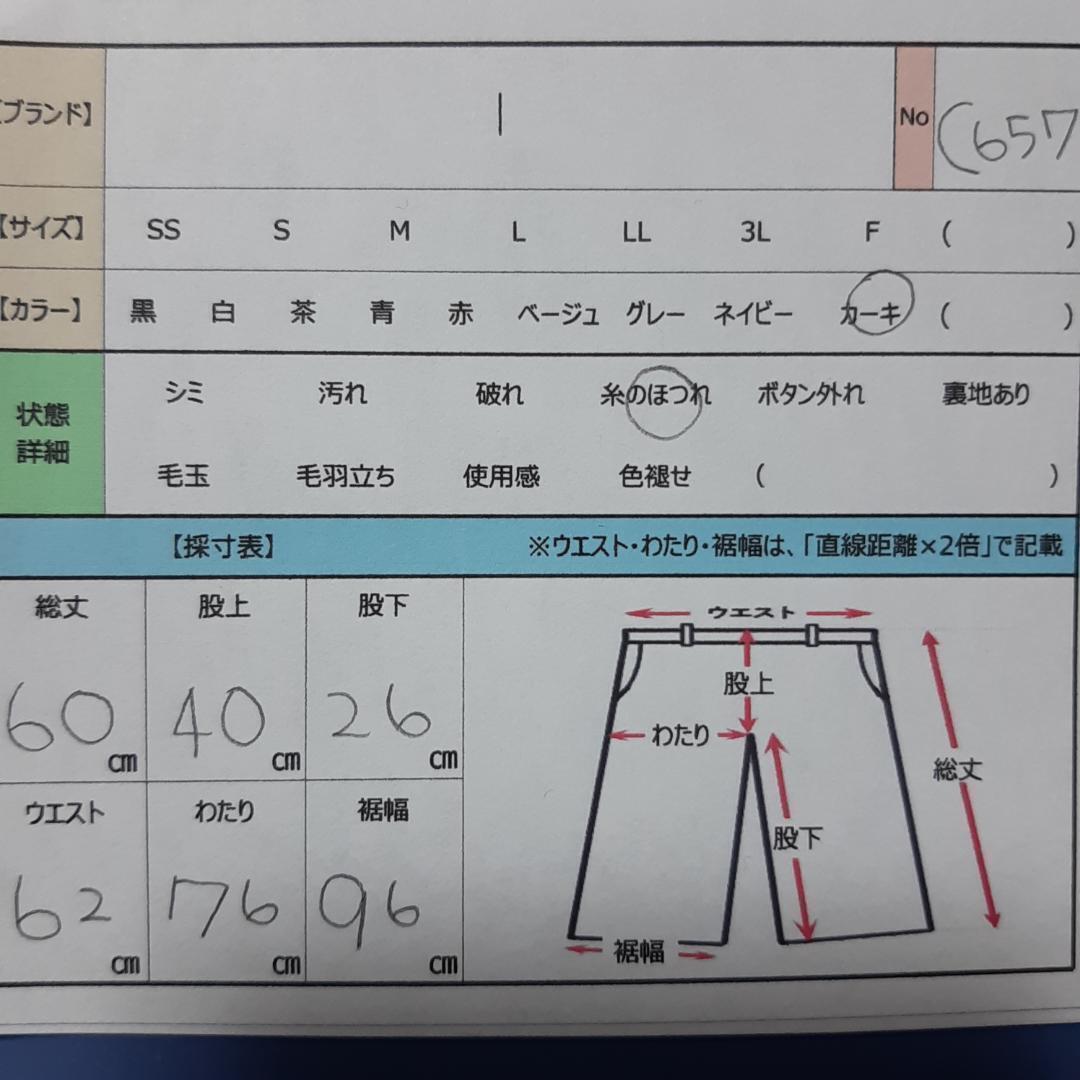 【ブランド】 | No (657
【サイズ】 SS S M L LL 3L F ( )
【カラー】 黒 白 茶 青 赤 ベージュ グレー ネイビー カーキ ( )
状態
詳細
シミ 汚れ 破れ 糸のほつれ ボタン外れ 裏地あり
毛玉 毛羽立ち 使用感 色褪せ ( )
【採寸表】 ※ウエスト・わたり・裾幅は、「直線距離×2倍」で記載
総丈 股上 股下
60cm 40cm 26cm
ウエスト わたり 裾幅
62cm 76cm 96cm
ウエスト
股上
わたり
総丈
股下
裾幅